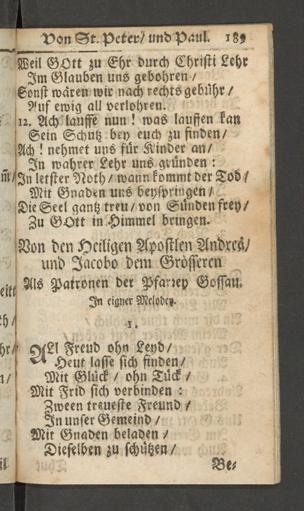 Von St. Peter/ und Paul. 189
Weil GOtt zu Ehr durch Christi Lehr
Im Glauben uns gebohren/
Sonst wären wir nach rechts gebühr/
Auf ewig all verlohren.
12. Ach lauffe nun! was lauffen kan
Sein Schutz bey euch zu finden/
Ach! nehmet uns für Kinder an/
In wahrer Lehr uns gründen:
In letster Noth/ wann kommt der Tod/
Mit Gnaden uns beyspringen/
Die Seel gantz treu/ von Sünden frey/
Zu GOtt in Himmel bringen.
Von den Heiligen Apostlen Andreä/
und Jacobo dem Grösseren
Als Patronen der Pfarrey Gossau.
In eigner Melodey.
1.
ALl Freud ohn Leyd/
Heut lasse sich finden/
Mit Glück/ ohn Tück/
Mit Frid sich verbinden:
Zween treueste Freund/
In unser Gemeind/
Mit Gnaden beladen/
Dieselben zu schützen/
Be-